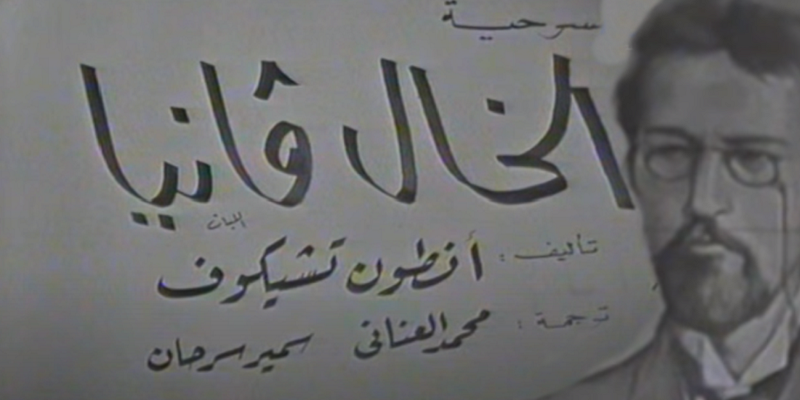 مسرحية
الخال ڤانيا
تأليف : أنطون تشيكوف
ترجمة : محمد العناني سمير سرحان